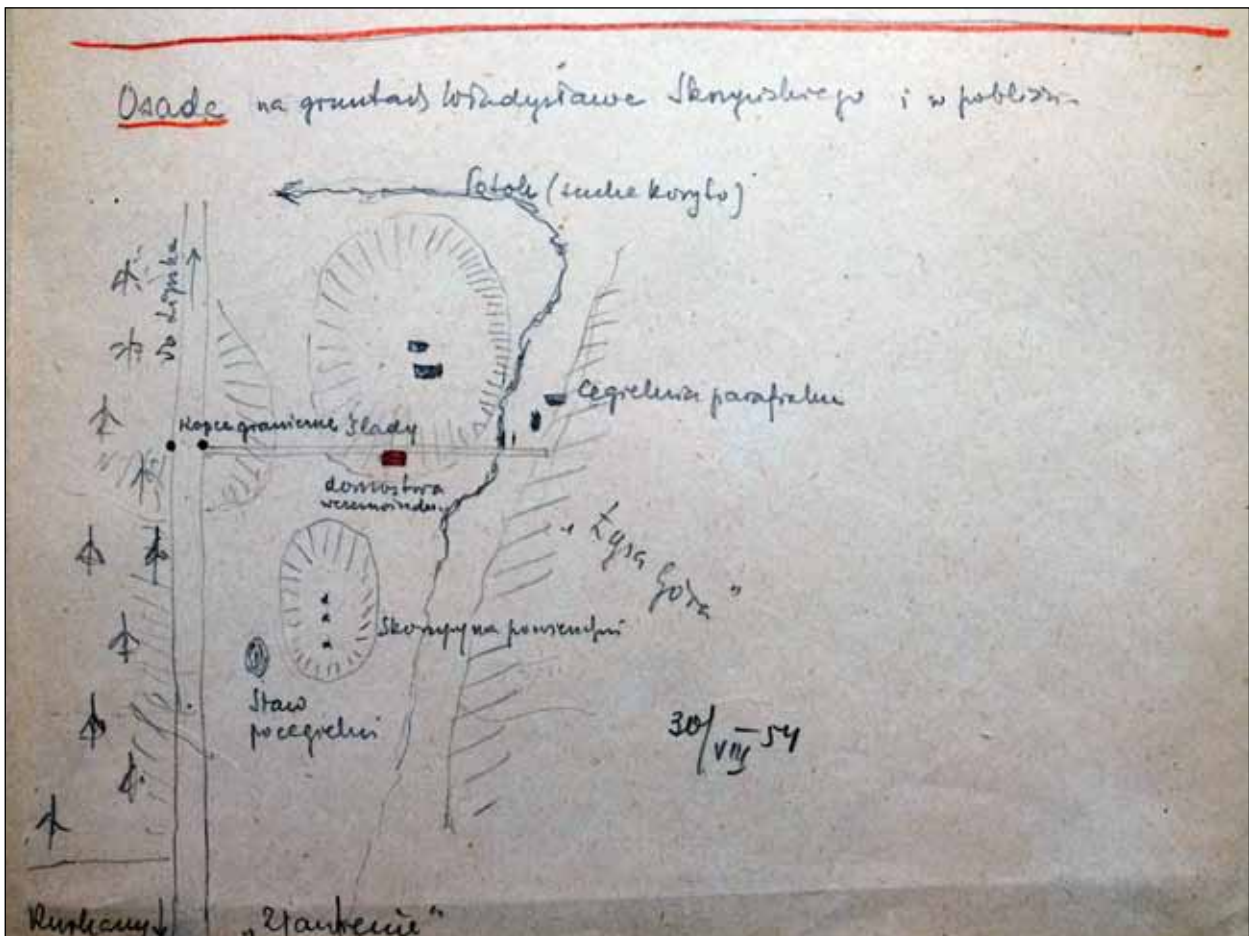 Osada na gruntach Władysława Skorupskiego i w pobliżu
(suche koryto)
do Lipska
Cegielnia parafialna
Kopce graniczne Ślady
domostwa
wczesnośredn.
"Łysa Góra"
Skorupy na powierzchni
Staw
pocegielni
30/VIII 54